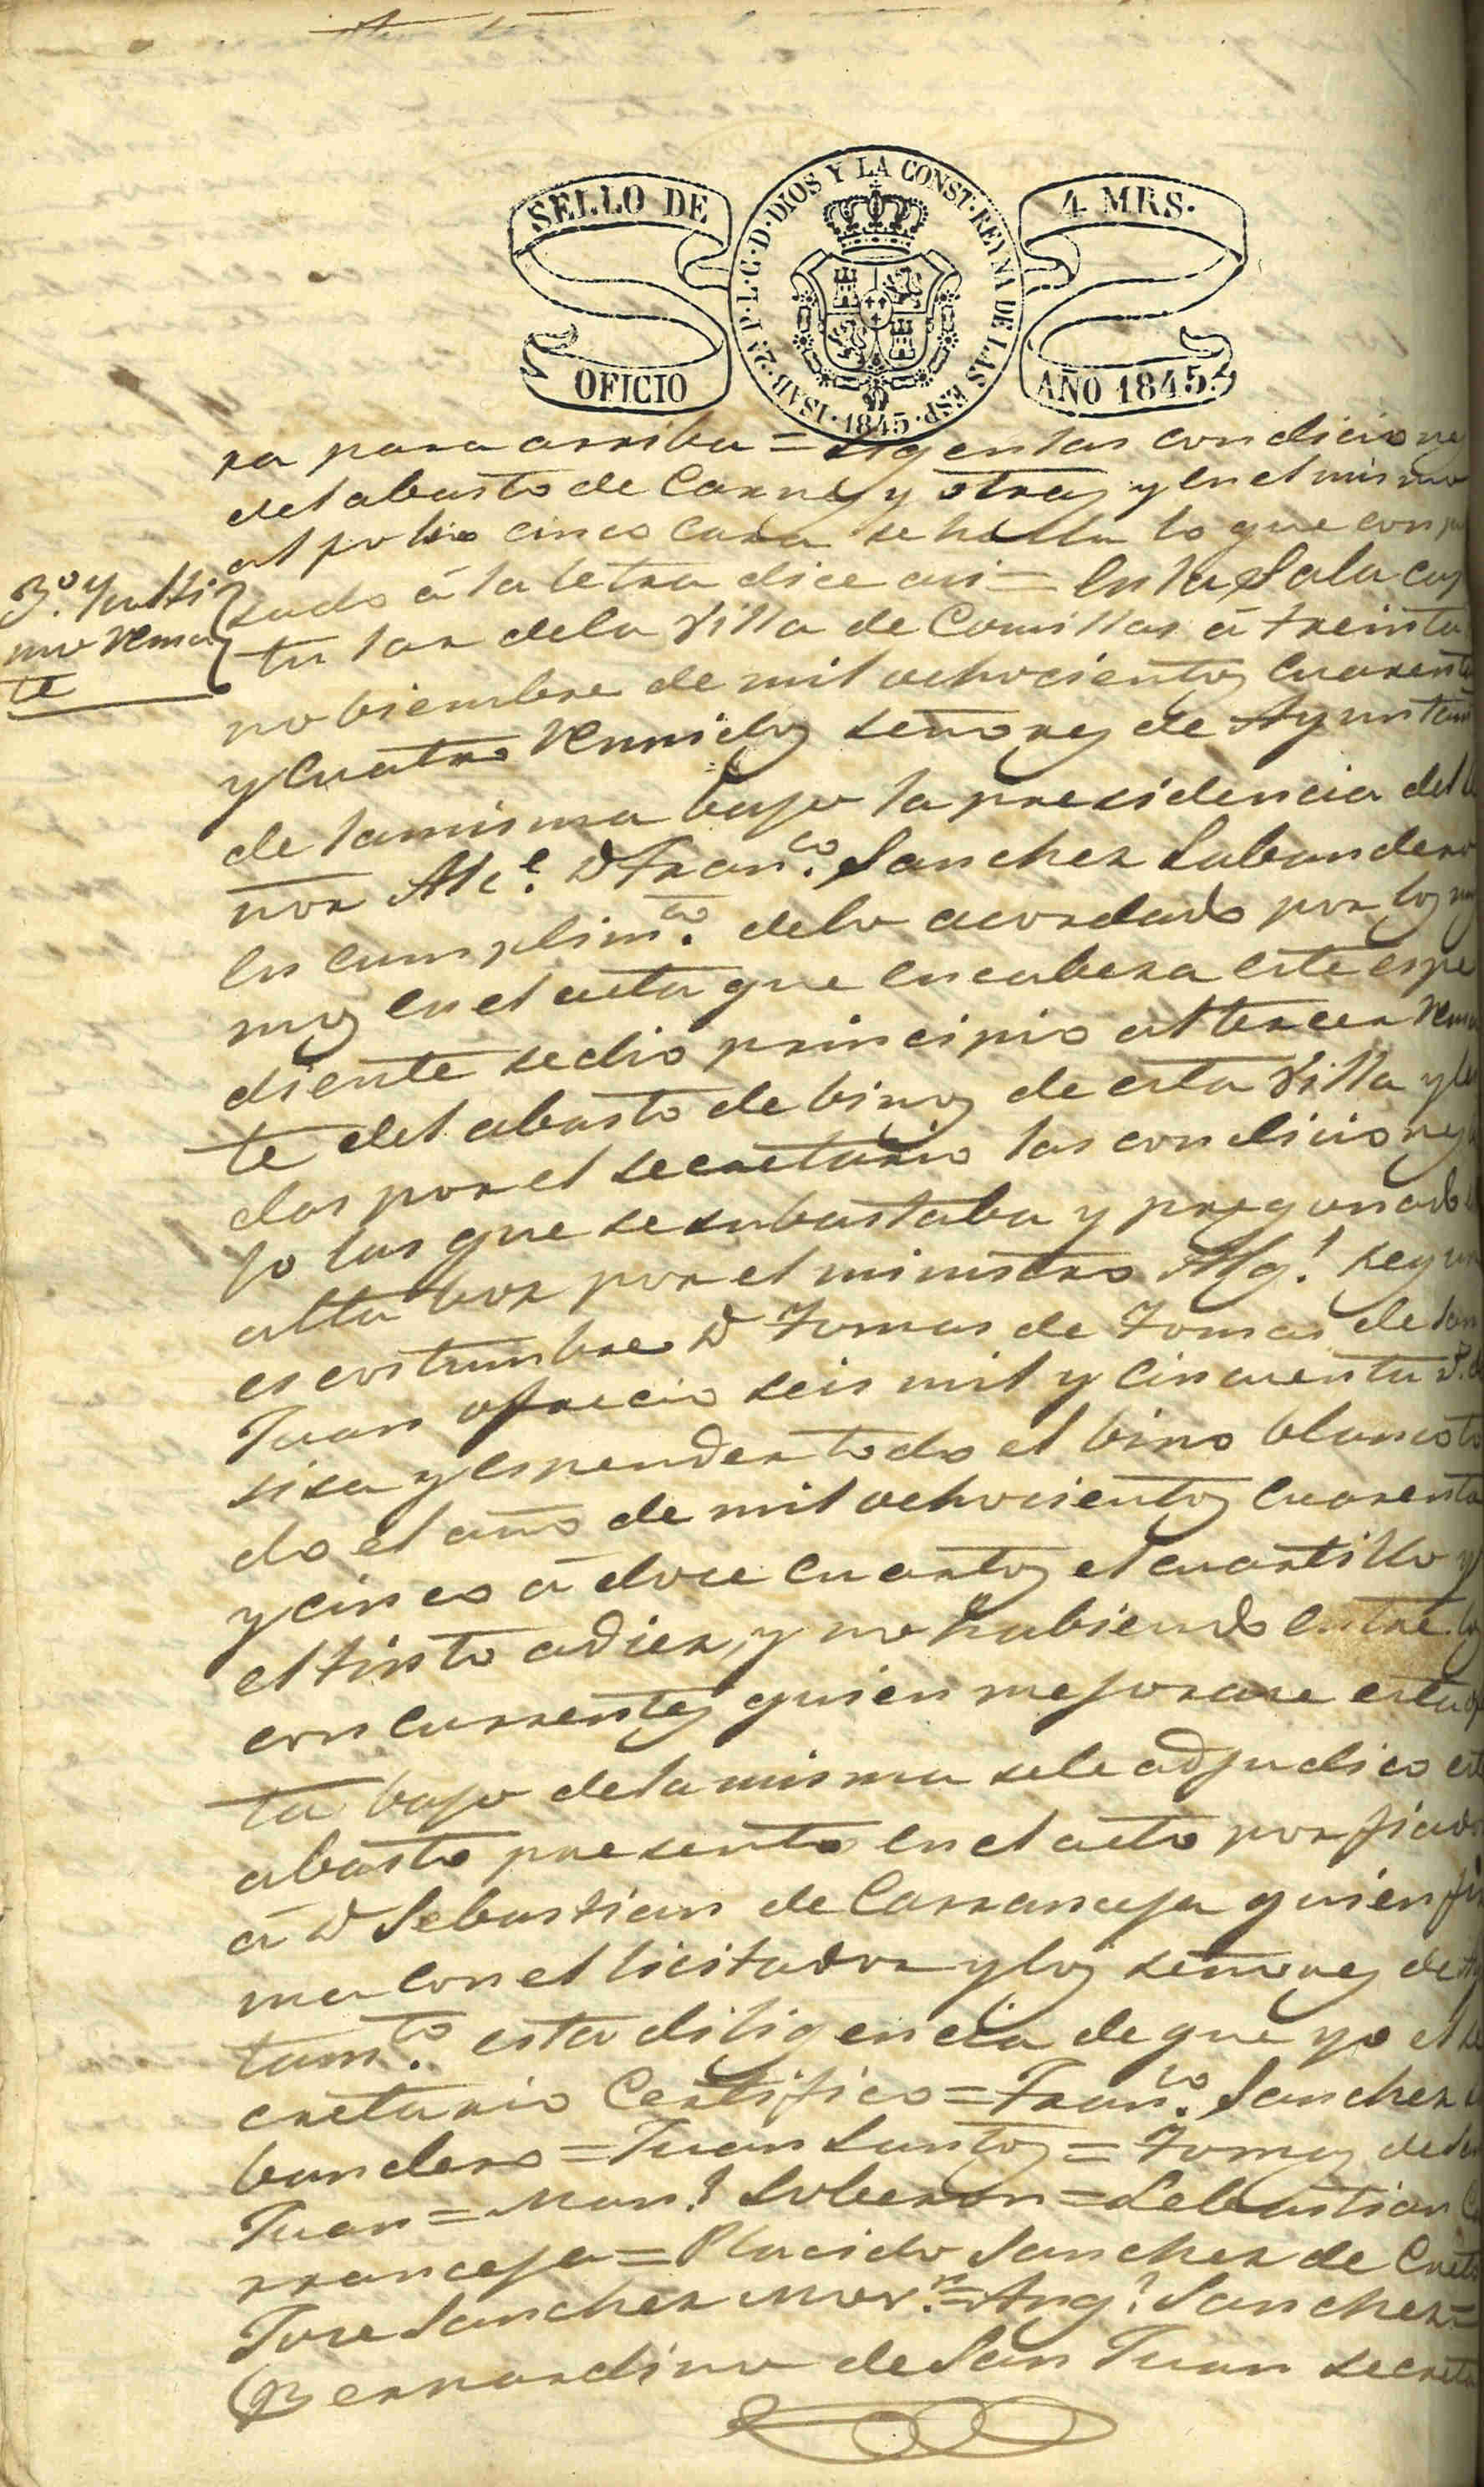 SELLO DE OFICIO
ISAB. 2ª P. L. G. D. DIOS Y LA CONST. REYNA DE LAS ESP. 1845
4 MRS. AÑO 1845
ra para arriba = Sigen las condiciones
del abasto de Carnes y otras y en el mismo
al folio cinco cara se halla lo que
sado á la letra dice asi = En la Sala
3º. y ulti
mo rema
te
tu lar dela Villa de Comillas á treinta
nobiembre de mil ochocientos cuarenta
y cuatro reunidos señores de
de la misma bajo la presidencia del
ñor Alcᵉ. D Franᶜᵒ. Sanchez Labandero
en cumplimᵗᵒ. delo acordado por los
mos en el acta que encabeza este espe
diente se dio principio al tercer
te del abasto de binos de esta Villa y
das por el secretario las condiciones
jo las que se subastaba y pregonado
alta boz por el ministro Algˡ. segun
es costumbre D Tomas de Tomas de
Juan ofrecio seis mil y cincuenta
sisa y espender todo el bino blanco to
do el año de mil ochocientos cuarenta
y cinco á doce cuartos el cuartillo y
el tinto a diez, y no habiendo entre
concurrentes quien mejorase esta
ta bajo dela misma sele adjudico
abasto presento en el acto por
á D Sebastian de Carranceja quien
ma con el licitador y los señores de
tamᵗᵒ. esta diligencia de que yo el
cretario Certifico = Franᶜᵒ. Sanchez
bandero = Juan Santos = Tomas de
Juan = Manˡ. Soberon = Sebastian
rranceja = Placido Sanchez de
Jose Sanchez Movⁿ. = Angˡ. Sanchez =
Bernardino de San Juan